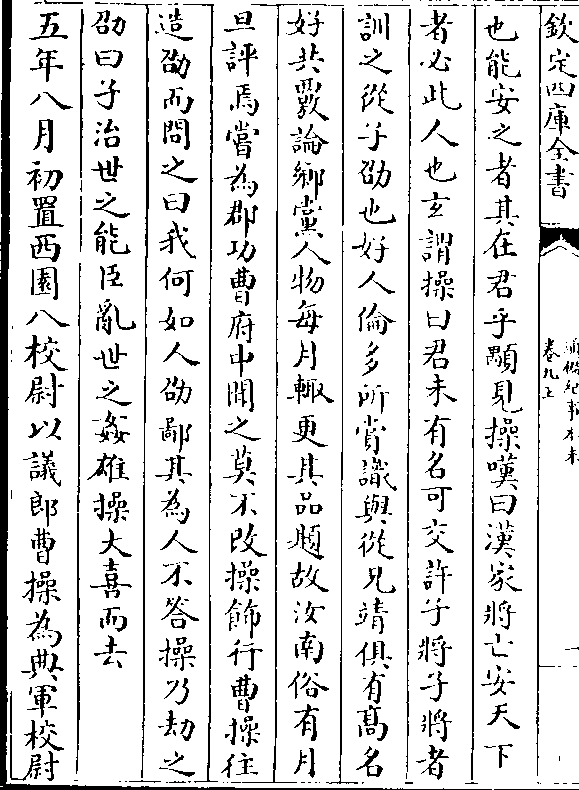 欽定四庫全書
通鑑紀事本末
卷九上
一
也能安之者其在君乎顒見操嘆曰漢家將亡安天下
者必此人也玄謂操曰君未有名可交許子將子將者
訓之從子劭也好人倫多所賞識與從兄靖俱有髙名
好共覈論鄉黨人物每月輙更其品題故汝南俗有月
旦評焉嘗為郡功曹府中聞之莫不改操飾行曹操往
造劭而問之曰我何如人劭鄙其為人不答操乃劫之
劭曰子治世之能臣亂世之姦雄操大喜而去
五年八月初置西園八校尉以議郎曹操為典軍校尉